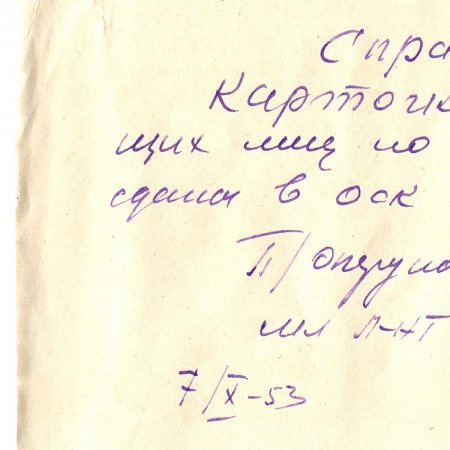 Спра
Карточк
щих лиц по
сдана в ОСК
П/опер упо
мл л-нт
7/X-53